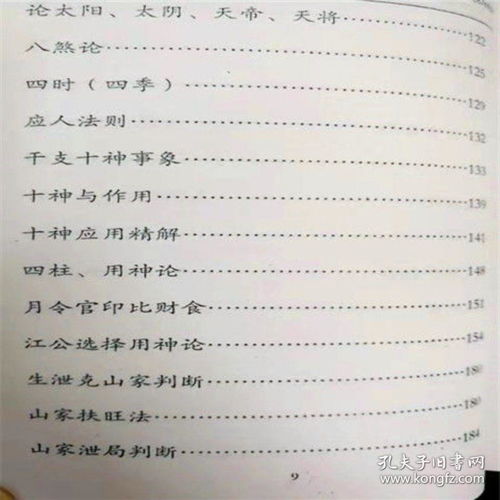 论太阳、太阴、天帝、天将……………122
八煞论……………125
四时（四季）……………129
应人法则……………132
干支十神事象……………133
十神与作用……………139
十神应用精解……………141
四柱、用神论……………148
月令官印比财食……………151
江公选择用神论……………154
生泄克山家判断……………180
山家扶旺法……………180
山家泄局判断……………184
9
孔夫子旧书网
www.kongfz.com